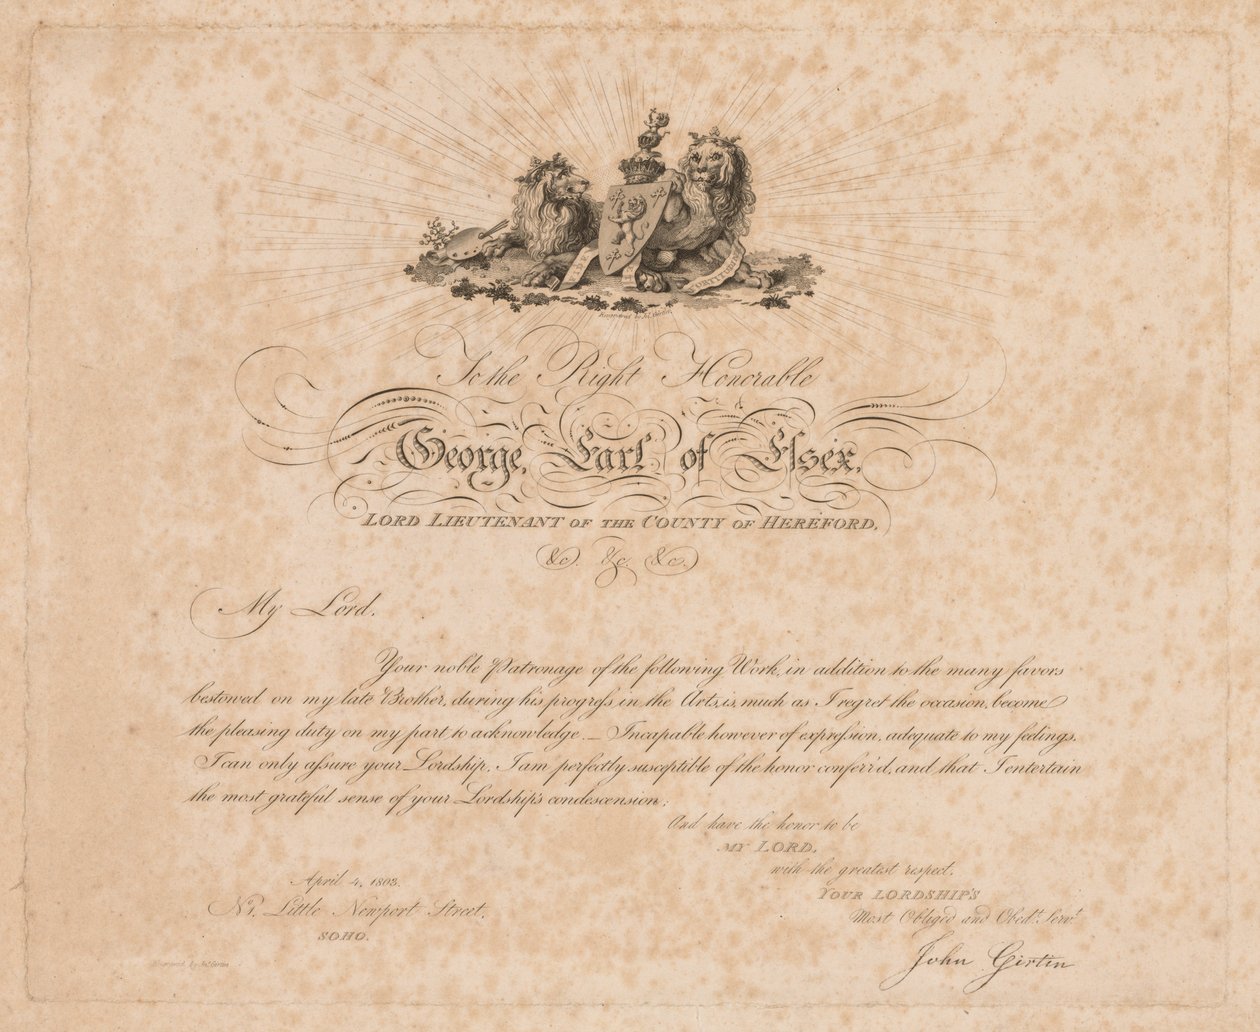 FIDE
FORTITUDINE
Engraved by Jn.º Girtin.
To the Right Honorable
George, Earl of Eſsex,
LORD LIEUTENANT OF THE COUNTY OF HEREFORD,
&c. &c. &c.
My Lord,
Your noble Patronage of the following Work, in addition to the many favors
bestowed on my late Brother, during his progreſs in the Arts, is, much as I regret the occasion, become
the pleasing duty on my part to acknowledge. — Incapable however of expreſsion, adequate to my feelings,
I can only aſsure your Lordship, I am perfectly susceptible of the honor conferr'd, and that I entertain
the most grateful sense of your Lordship's condescension;
And have the honor to be
MY LORD,
with the greatest respect,
YOUR LORDSHIP'S
Most Obliged and Obed.t Serv.t
John Girtin
April 4, 1803.
Nº 1, Little Newport Street,
SOHO.
Engraved by Jn.º Girtin